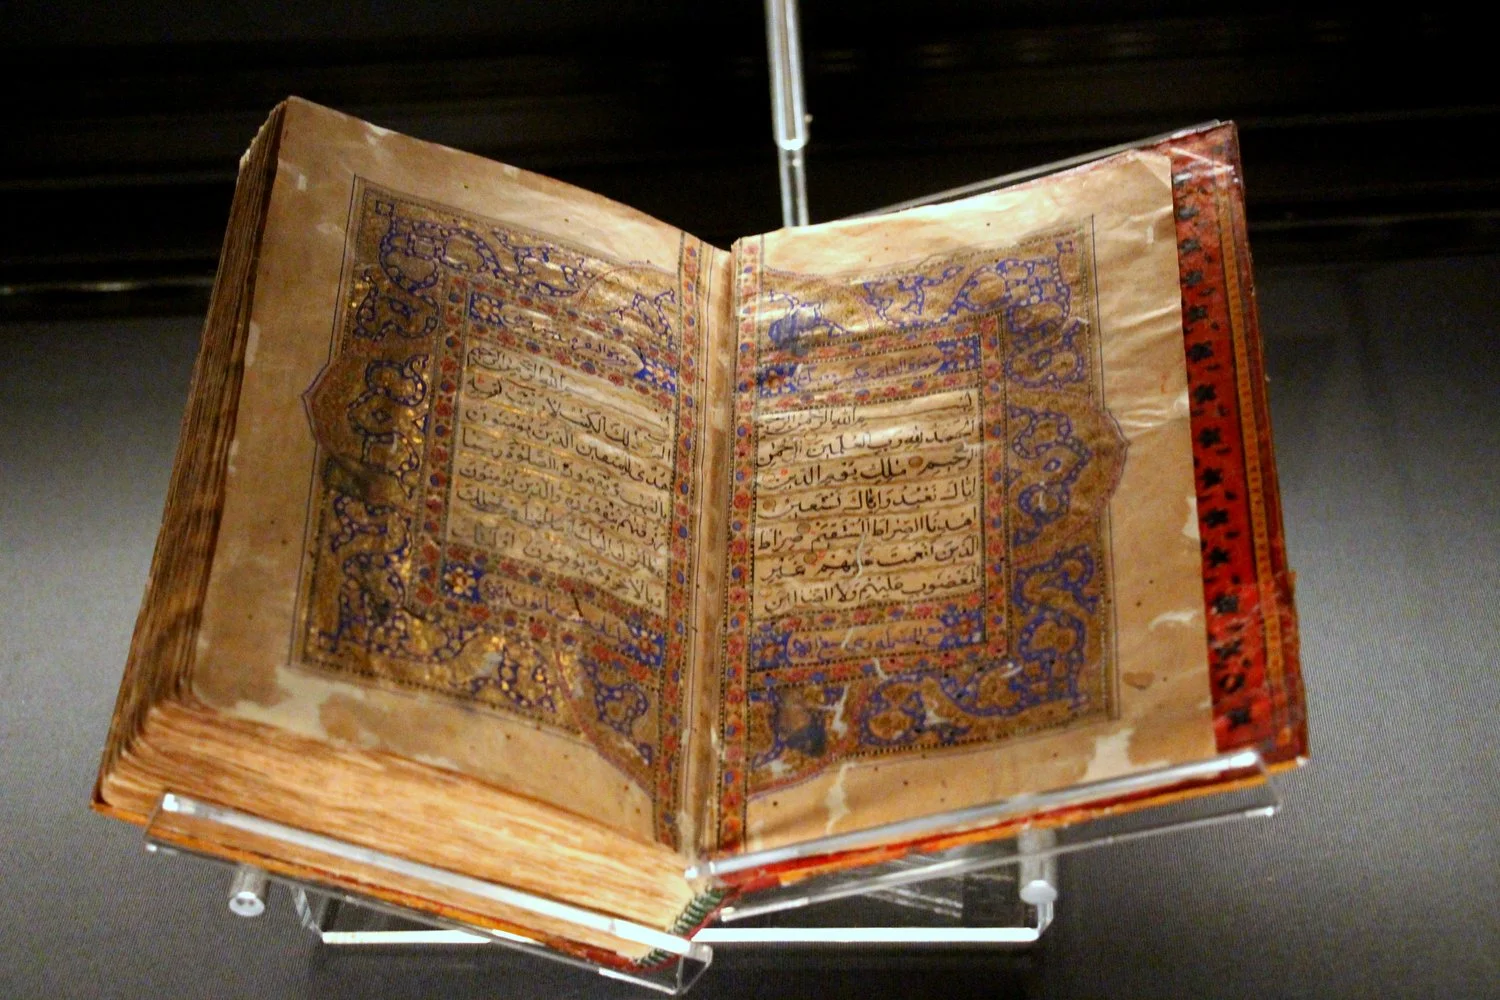 بسم الله الرحمن الرحيم
الحمد لله رب العلمين الرحمن
الرحيم ملك يوم الدين
اياك نعبد واياك نستعين
اهدنا الصراط المستقيم صراط
الذين انعمت عليهم غير
المغضوب عليهم ولا الضالين
بسم الله الرحمن الرحيم
الم ذلك الكتب لا ريب فيه
هدى للمتقين الذين يؤمنون
بالغيب ويقيمون الصلوة ومما
رزقنهم ينفقون والذين يؤمنون
بما انزل اليك وما انزل من قبلك
وبالاخرة هم يوقنون اولئك